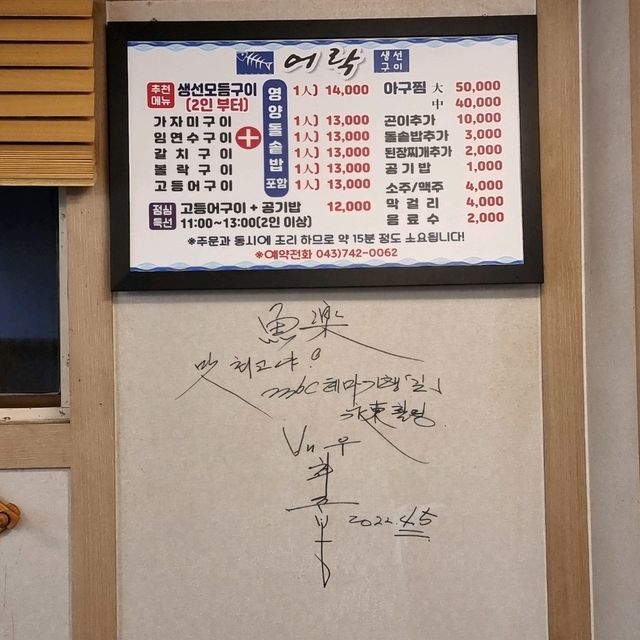 어락 생선구이
추천메뉴 생선모듬구이 (2인 부터) 1人) 14,000
가자미구이 1人) 13,000
임연수구이 1人) 13,000
갈치구이 1人) 13,000
볼락구이 1人) 13,000
고등어구이 1人) 13,000
+ 영양돌솥밥 포함
점심특선 고등어구이 + 공기밥 12,000
11:00~13:00(2인 이상)
아구찜 大 50,000
中 40,000
곤이추가 10,000
돌솥밥추가 3,000
된장찌개추가 2,000
공기밥 1,000
소주/맥주 4,000
막걸리 4,000
음료수 2,000
※주문과 동시에 조리 하므로 약 15분 정도 소요됩니다!
※예약전화 043)742-0062
魚楽
맛 최고야!
mbc 테마기행「길」
2022.4.5